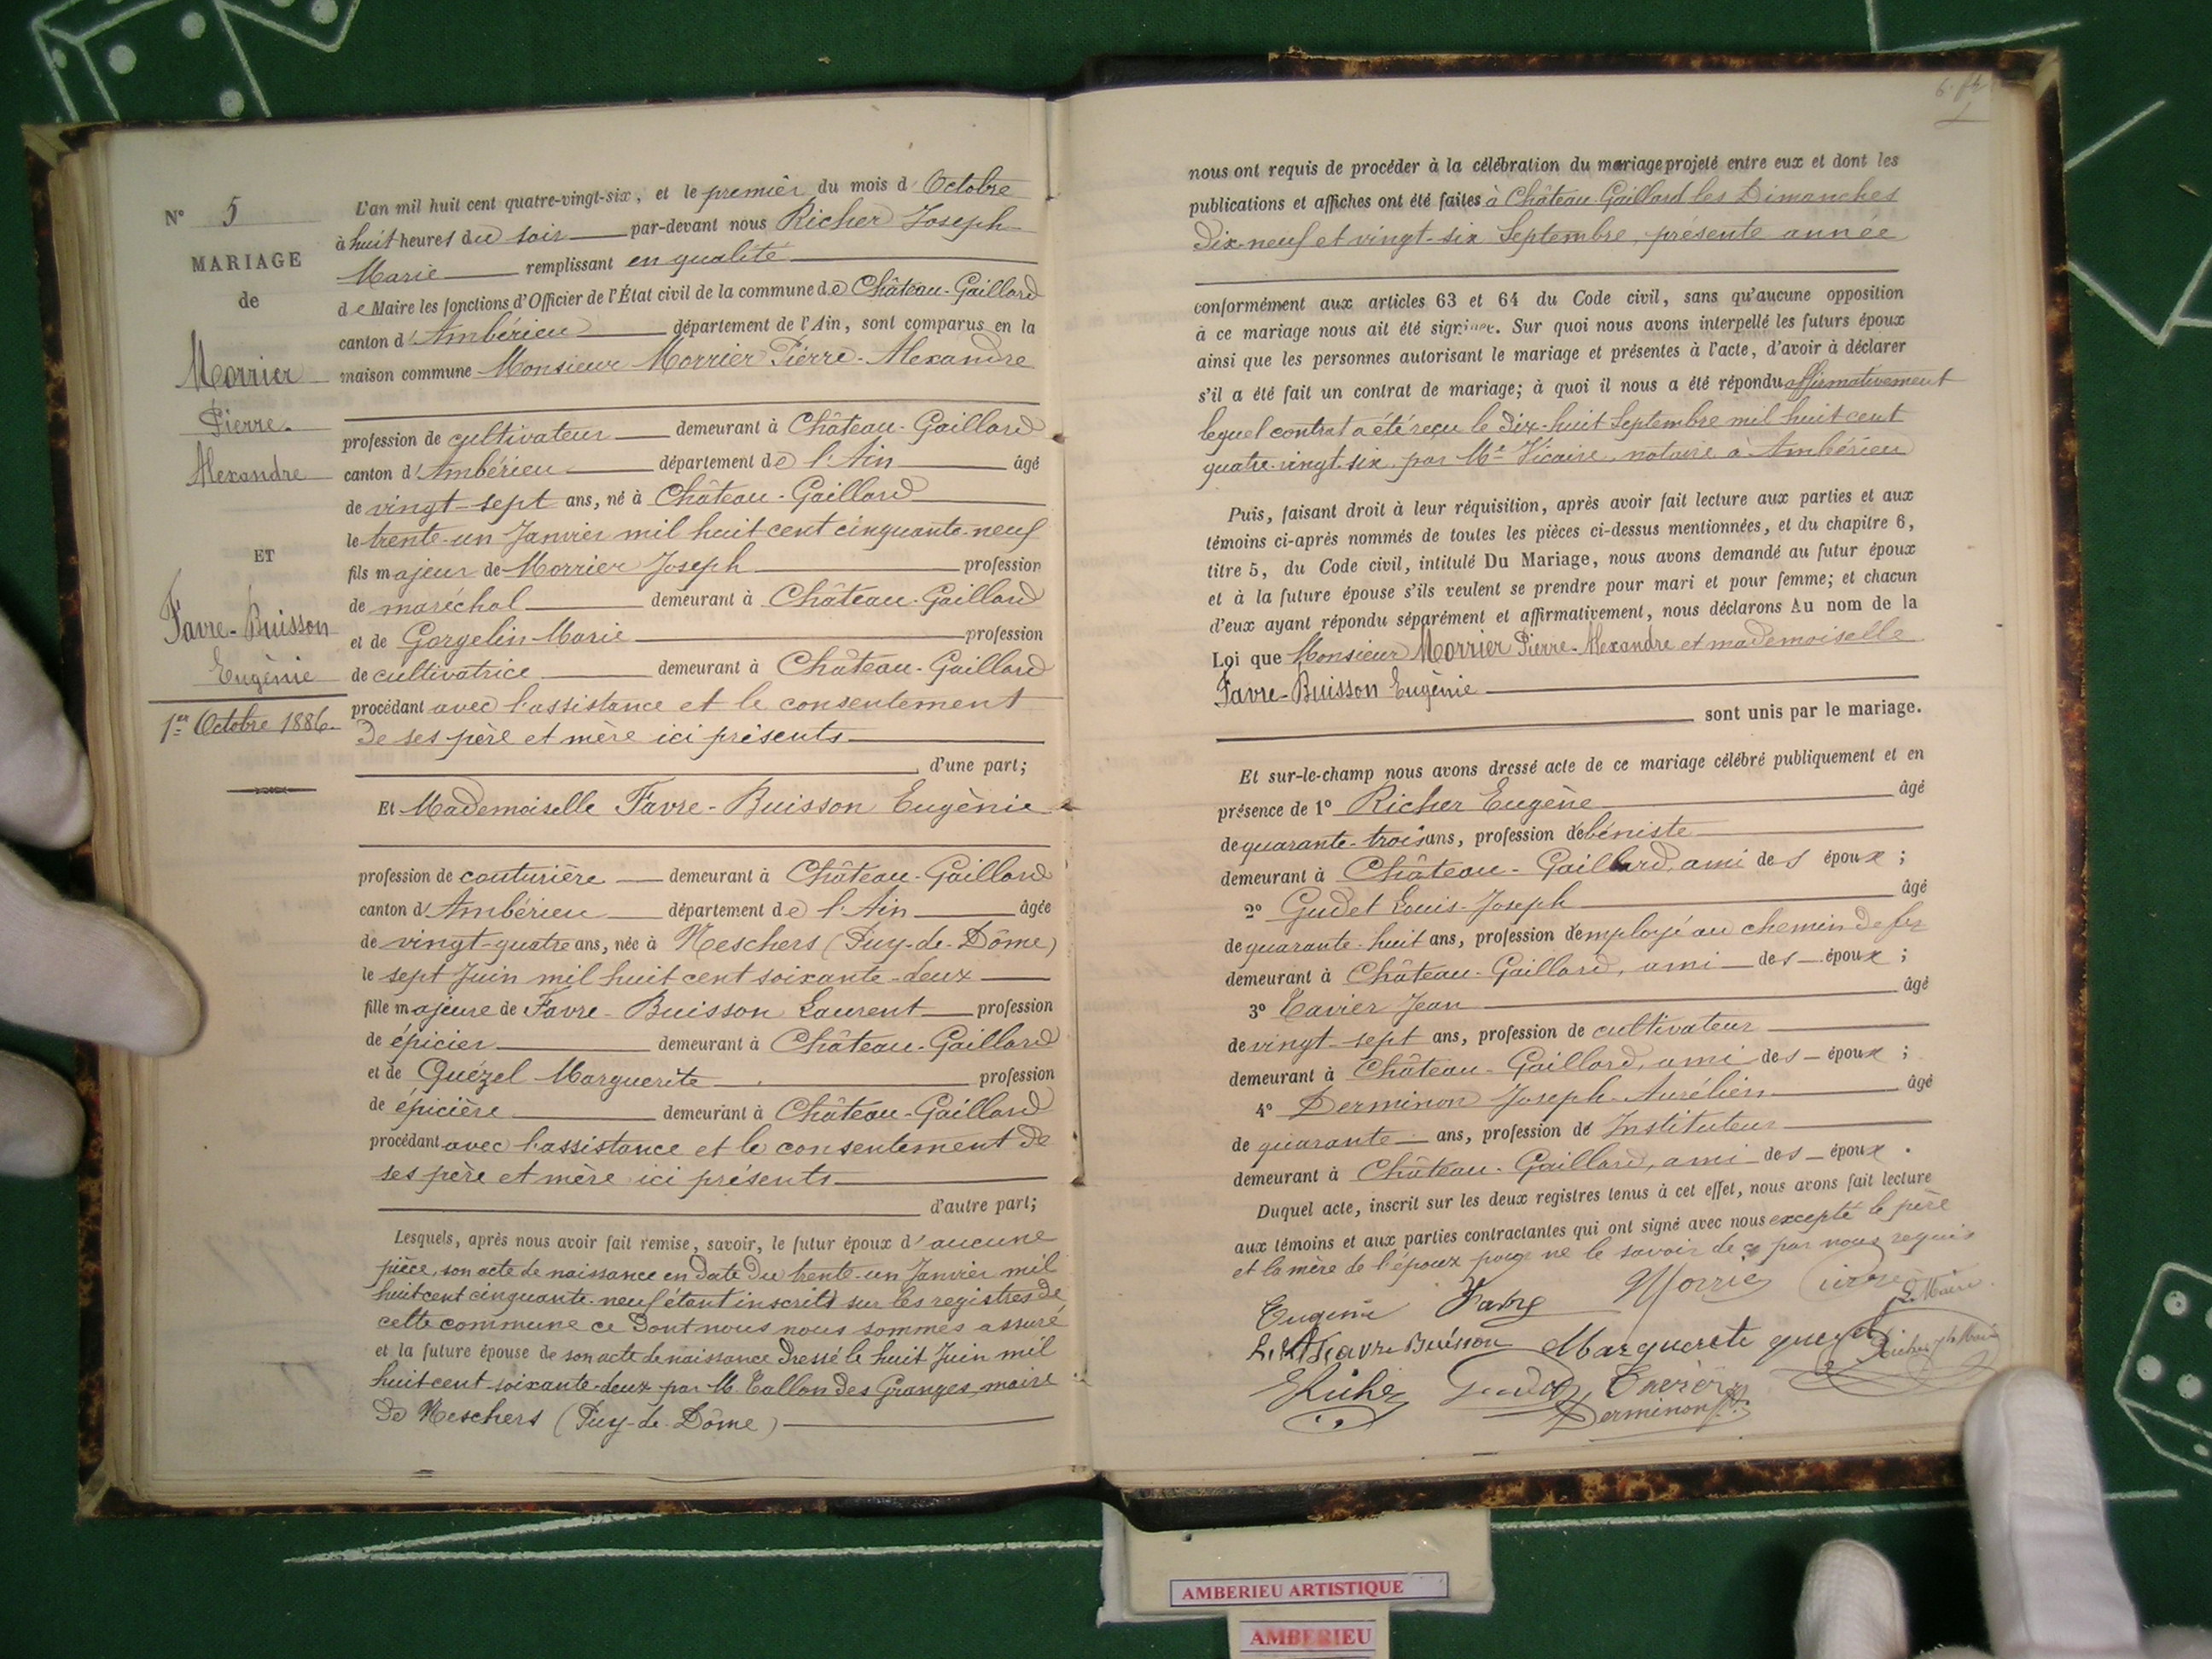 N° 5
MARIAGE
de
Morrier
Pierre
Alexandre
ET
Favre-Buisson
Eugènie
1er Octobre 1886
L'an mil huit cent quatre-vingt-six, et le premier du mois d'Octobre
à huit heures du soir par-devant nous Richer Joseph-
Marie remplissant en qualité
de Maire les fonctions d'Officier de l'État civil de la commune de Château-Gaillard
canton d'Ambérieu département de l'Ain, sont comparus en la
maison commune Monsieur Morrier Pierre-Alexandre
profession de cultivateur demeurant à Château-Gaillard
canton d'Ambérieu département de l'Ain âgé
de vingt-sept ans, né à Château-Gaillard
le trente-un Janvier mil huit cent cinquante-neuf
fils majeur de Morrier Joseph profession
de maréchal demeurant à Château-Gaillard
et de Gorgelin Marie profession
de cultivatrice demeurant à Château-Gaillard
procédant avec l'assistance et le consentement
de ses père et mère ici présents
d'une part;
Et Mademoiselle Favre-Buisson Eugènie
profession de couturière demeurant à Château-Gaillard
canton d'Ambérieu département de l'Ain âgée
de vingt-quatre ans, née à Neschers (Puy-de-Dôme)
le sept Juin mil huit cent soixante-deux
fille majeure de Favre-Buisson Laurent profession
de épicier demeurant à Château-Gaillard
et de Quézel Marguerite profession
de épicière demeurant à Château-Gaillard
procédant avec l'assistance et le consentement de
ses père et mère ici présents
d'autre part;
Lesquels, après nous avoir fait remise, savoir, le futur époux d'aucune
pièce, son acte de naissance en date du trente-un Janvier mil
huit cent cinquante-neuf étant inscrits sur les registres de
cette commune ce dont nous nous sommes assuré
et la future épouse de son acte de naissance dressé le huit Juin mil
huit cent soixante-deux par M. Tallon des Granges, maire
de Neschers (Puy-de-Dôme)
nous ont requis de procéder à la célébration du mariage projeté entre eux et dont les
publications et affiches ont été faites à Château-Gaillard les Dimanches
dix-neuf et vingt-six Septembre, présente année
conformément aux articles 63 et 64 du Code civil, sans qu'aucune opposition
à ce mariage nous ait été signifiée. Sur quoi nous avons interpellé les futurs époux
ainsi que les personnes autorisant le mariage et présentes à l'acte, d'avoir à déclarer
s'il a été fait un contrat de mariage; à quoi il nous a été répondu affirmativement
lequel contrat a été reçu le dix-huit Septembre mil huit cent
quatre-vingt-six par Me Vicaire, notaire à Ambérieu
Puis, faisant droit à leur réquisition, après avoir fait lecture aux parties et aux
témoins ci-après nommés de toutes les pièces ci-dessus mentionnées, et du chapitre 6,
titre 5, du Code civil, intitulé Du Mariage, nous avons demandé au futur époux
et à la future épouse s'ils veulent se prendre pour mari et pour femme; et chacun
d'eux ayant répondu séparément et affirmativement, nous déclarons Au nom de la
Loi que Monsieur Morrier Pierre-Alexandre et mademoiselle
Favre-Buisson Eugènie
sont unis par le mariage.
Et sur-le-champ nous avons dressé acte de ce mariage célébré publiquement et en
présence de 1° Richer Eugène âgé
de quarante-trois ans, profession d'ébéniste
demeurant à Château-Gaillard, ami des époux;
2° Gudet Louis-Joseph âgé
de quarante-huit ans, profession d'employé au chemin de fer
demeurant à Château-Gaillard, ami des époux;
3° Tavier Jean âgé
de vingt-sept ans, profession de cultivateur
demeurant à Château-Gaillard, ami des époux;
4° Derminon Joseph-Aurélien âgé
de quarante ans, profession de Instituteur
demeurant à Château-Gaillard, ami des époux.
Duquel acte, inscrit sur les deux registres tenus à cet effet, nous avons fait lecture
aux témoins et aux parties contractantes qui ont signé avec nous excepté le père
et la mère de l'époux pour ne le savoir de ce par nous requis
Eugenie Favre Morrier Pierre
Le Maire
Favre Buisson Marguerite quezel Richer Jh Marie
ERicher Gudet Tavier
Derminon
AMBERIEU ARTISTIQUE
AMBERIEU